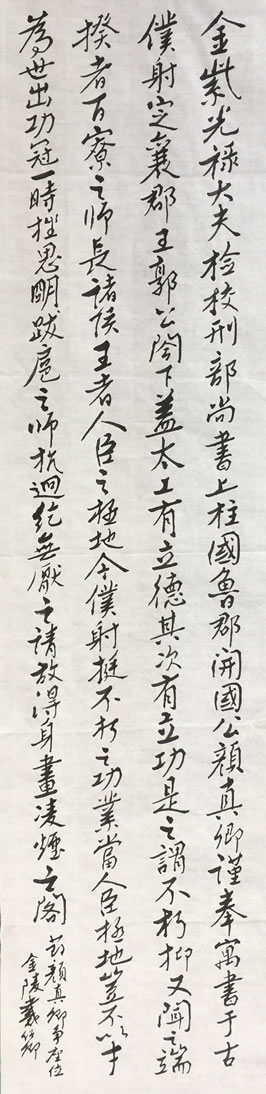 金紫光禄大夫检校刑部尚書上柱國魯郡開國公顏真卿謹奉寓書于右
僕射定襄郡王郭公閣下蓋太上有立德其次有立功是之謂不朽抑又聞之端
揆者百寮之師長諸侯王者人臣之極地今僕射挺不朽之功業當人臣極地豈不以才
為世出功冠一時挫思明跋扈之師抗迴紇無厭之請故得身畫凌煙之閣
顏真卿爭座位
金陵